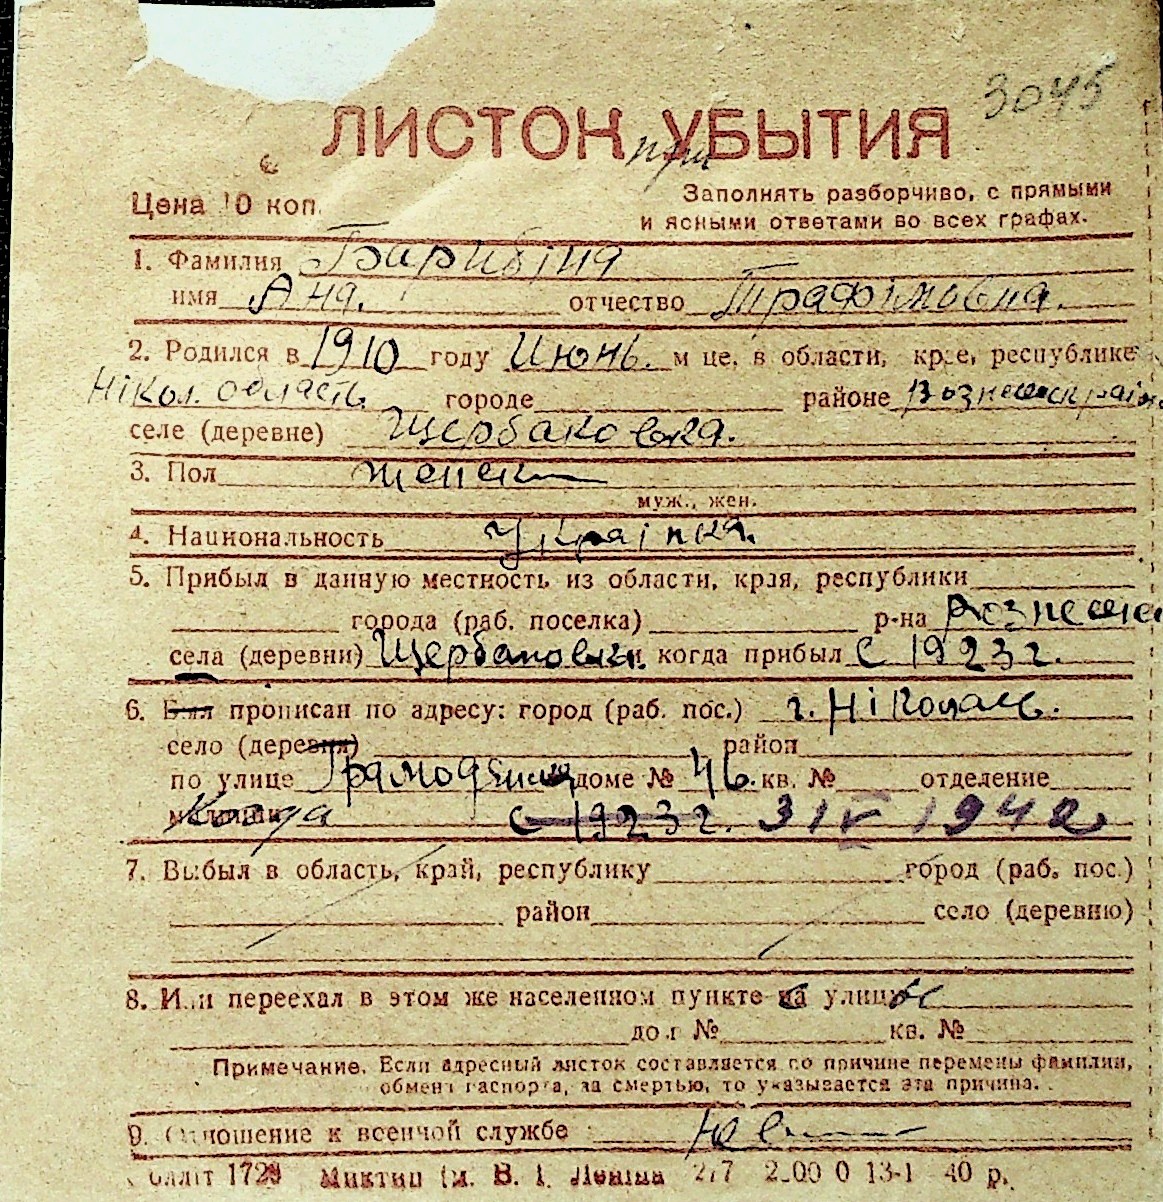 3045
ЛИСТОК УБЫТИЯ
при
Цена 10 коп.
Заполнять разборчиво, с прямыми
и ясными ответами во всех графах.
1. Фамилия Гарибіна
имя Ана. отчество Трафімовна.
2. Родился в 1910 году Июнь. м це, в области, крае, республике
Нікол. область. городе районе
селе (деревне) Щербаковка.
3. Пол женск
муж., жен.
4. Национальность Украінка.
5. Прибыл в данную местность из области, края, республики
города (раб. поселка) р-на Вознесенс
села (деревни) Щербаковки. и когда прибыл с 1923 г.
6. Был прописан по адресу: город (раб. пос.) г. Ніколаев.
село (деревня) район
по улице доме № 46. кв. № отделение
милиции Когда с 1923 г. 3 IV 1942
7. Выбыл в область, край, республику город (раб. пос.)
район село (деревню)
8. Или переехал в этом же населенном пункте с улицы
дом № кв. №
Примечание. Если адресный листок составляется по причине перемены фамилии,
обмена паспорта, за смертью, то указывается эта причина.
9. Отношение к военной службе
1729 Миктип ім. В. І. Леніна 13-1 40 р.